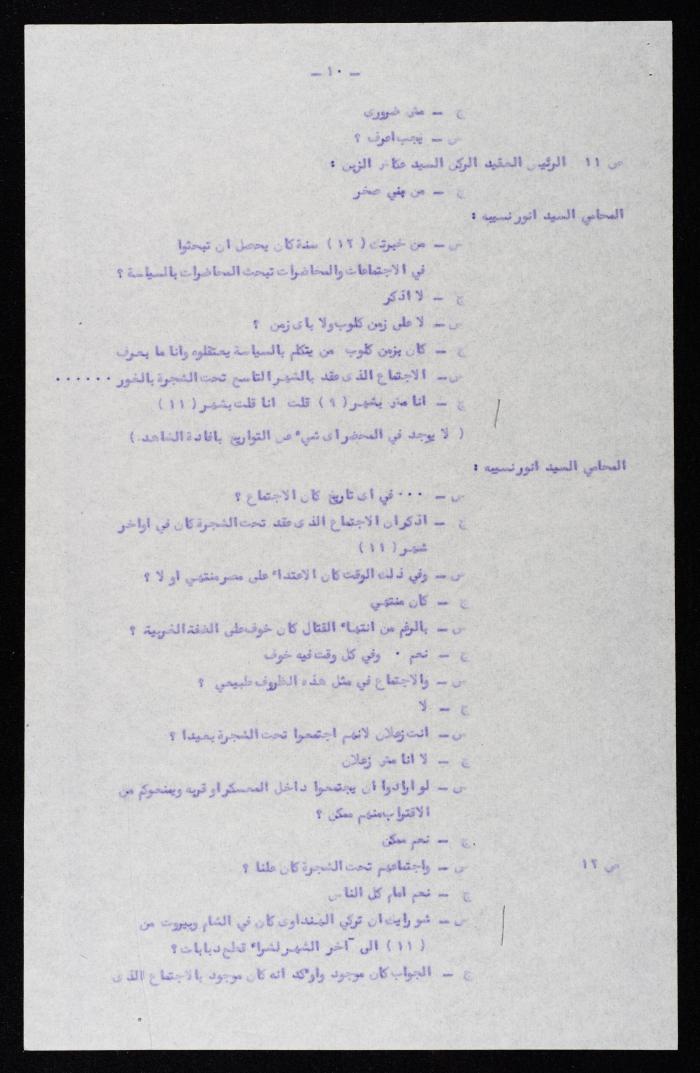 - ١٠ -
ج - مش ضروري
س - يجب اعرف ؟
ص ١١ الرئيس العقيد الركن السيد عكاش الزبن :
ج - من بني صخر
المحامي السيد انور نسيبه :
س - من خبرتك ( ١٢ ) سنة كان يحصل ان تبحثوا
في الاجتماعات والمحاضرات تبحث المحاضرات بالسياسة ؟
ج - لا اذكر
س - لا على زمن كلوب ولا باى زمن ؟
ج - كان بزمن كلوب من يتكلم بالسياسة يعتقلوه وانا ما بعرف
س - الاجتماع الذى عقد بالشهر التاسع تحت الشجرة بالغور ......
ج - انا مش بشهر ( ٩ ) قلت انا قلت بشهر ( ١١ )
( لا يوجد في المحضر اى شيء عن التواريخ بافادة الشاهد )
المحامي السيد انور نسيبه :
س - ... في اى تاريخ كان الاجتماع ؟
ج - اذكر ان الاجتماع الذى عقد تحت الشجرة كان في اواخر
شهر ( ١١ )
س - وفي ذلك الوقت كان الاعتداء على مصر منتهي او لا ؟
ج - كان منتهي
س - بالرغم من انتهاء القتال كان خوف على الضفة الغربية ؟
ج - نعم . وفي كل وقت فيه خوف
س - والاجتماع في مثل هذه الظروف طبيعي ؟
ج - لا
س - انت زعلان لانهم اجتمعوا تحت الشجرة بعيدا ؟
ج - لا انا مش زعلان
س - لو ارادوا ان يجتمعوا داخل المعسكر او قربه ويمنعوكم من
الاقتراب منهم ممكن ؟
ج - نعم ممكن
ص ١٢ س - واجتماعهم تحت الشجرة كان علنا ؟
ج - نعم امام كل الناس
س - شو رايك ان تركي الهنداوى كان في الشام وبيروت من
( ١١ ) الى آخر الشهر لشراء قطع دبابات ؟
ج - الجواب كان موجود واؤكد انه كان موجود بالاجتماع الذى